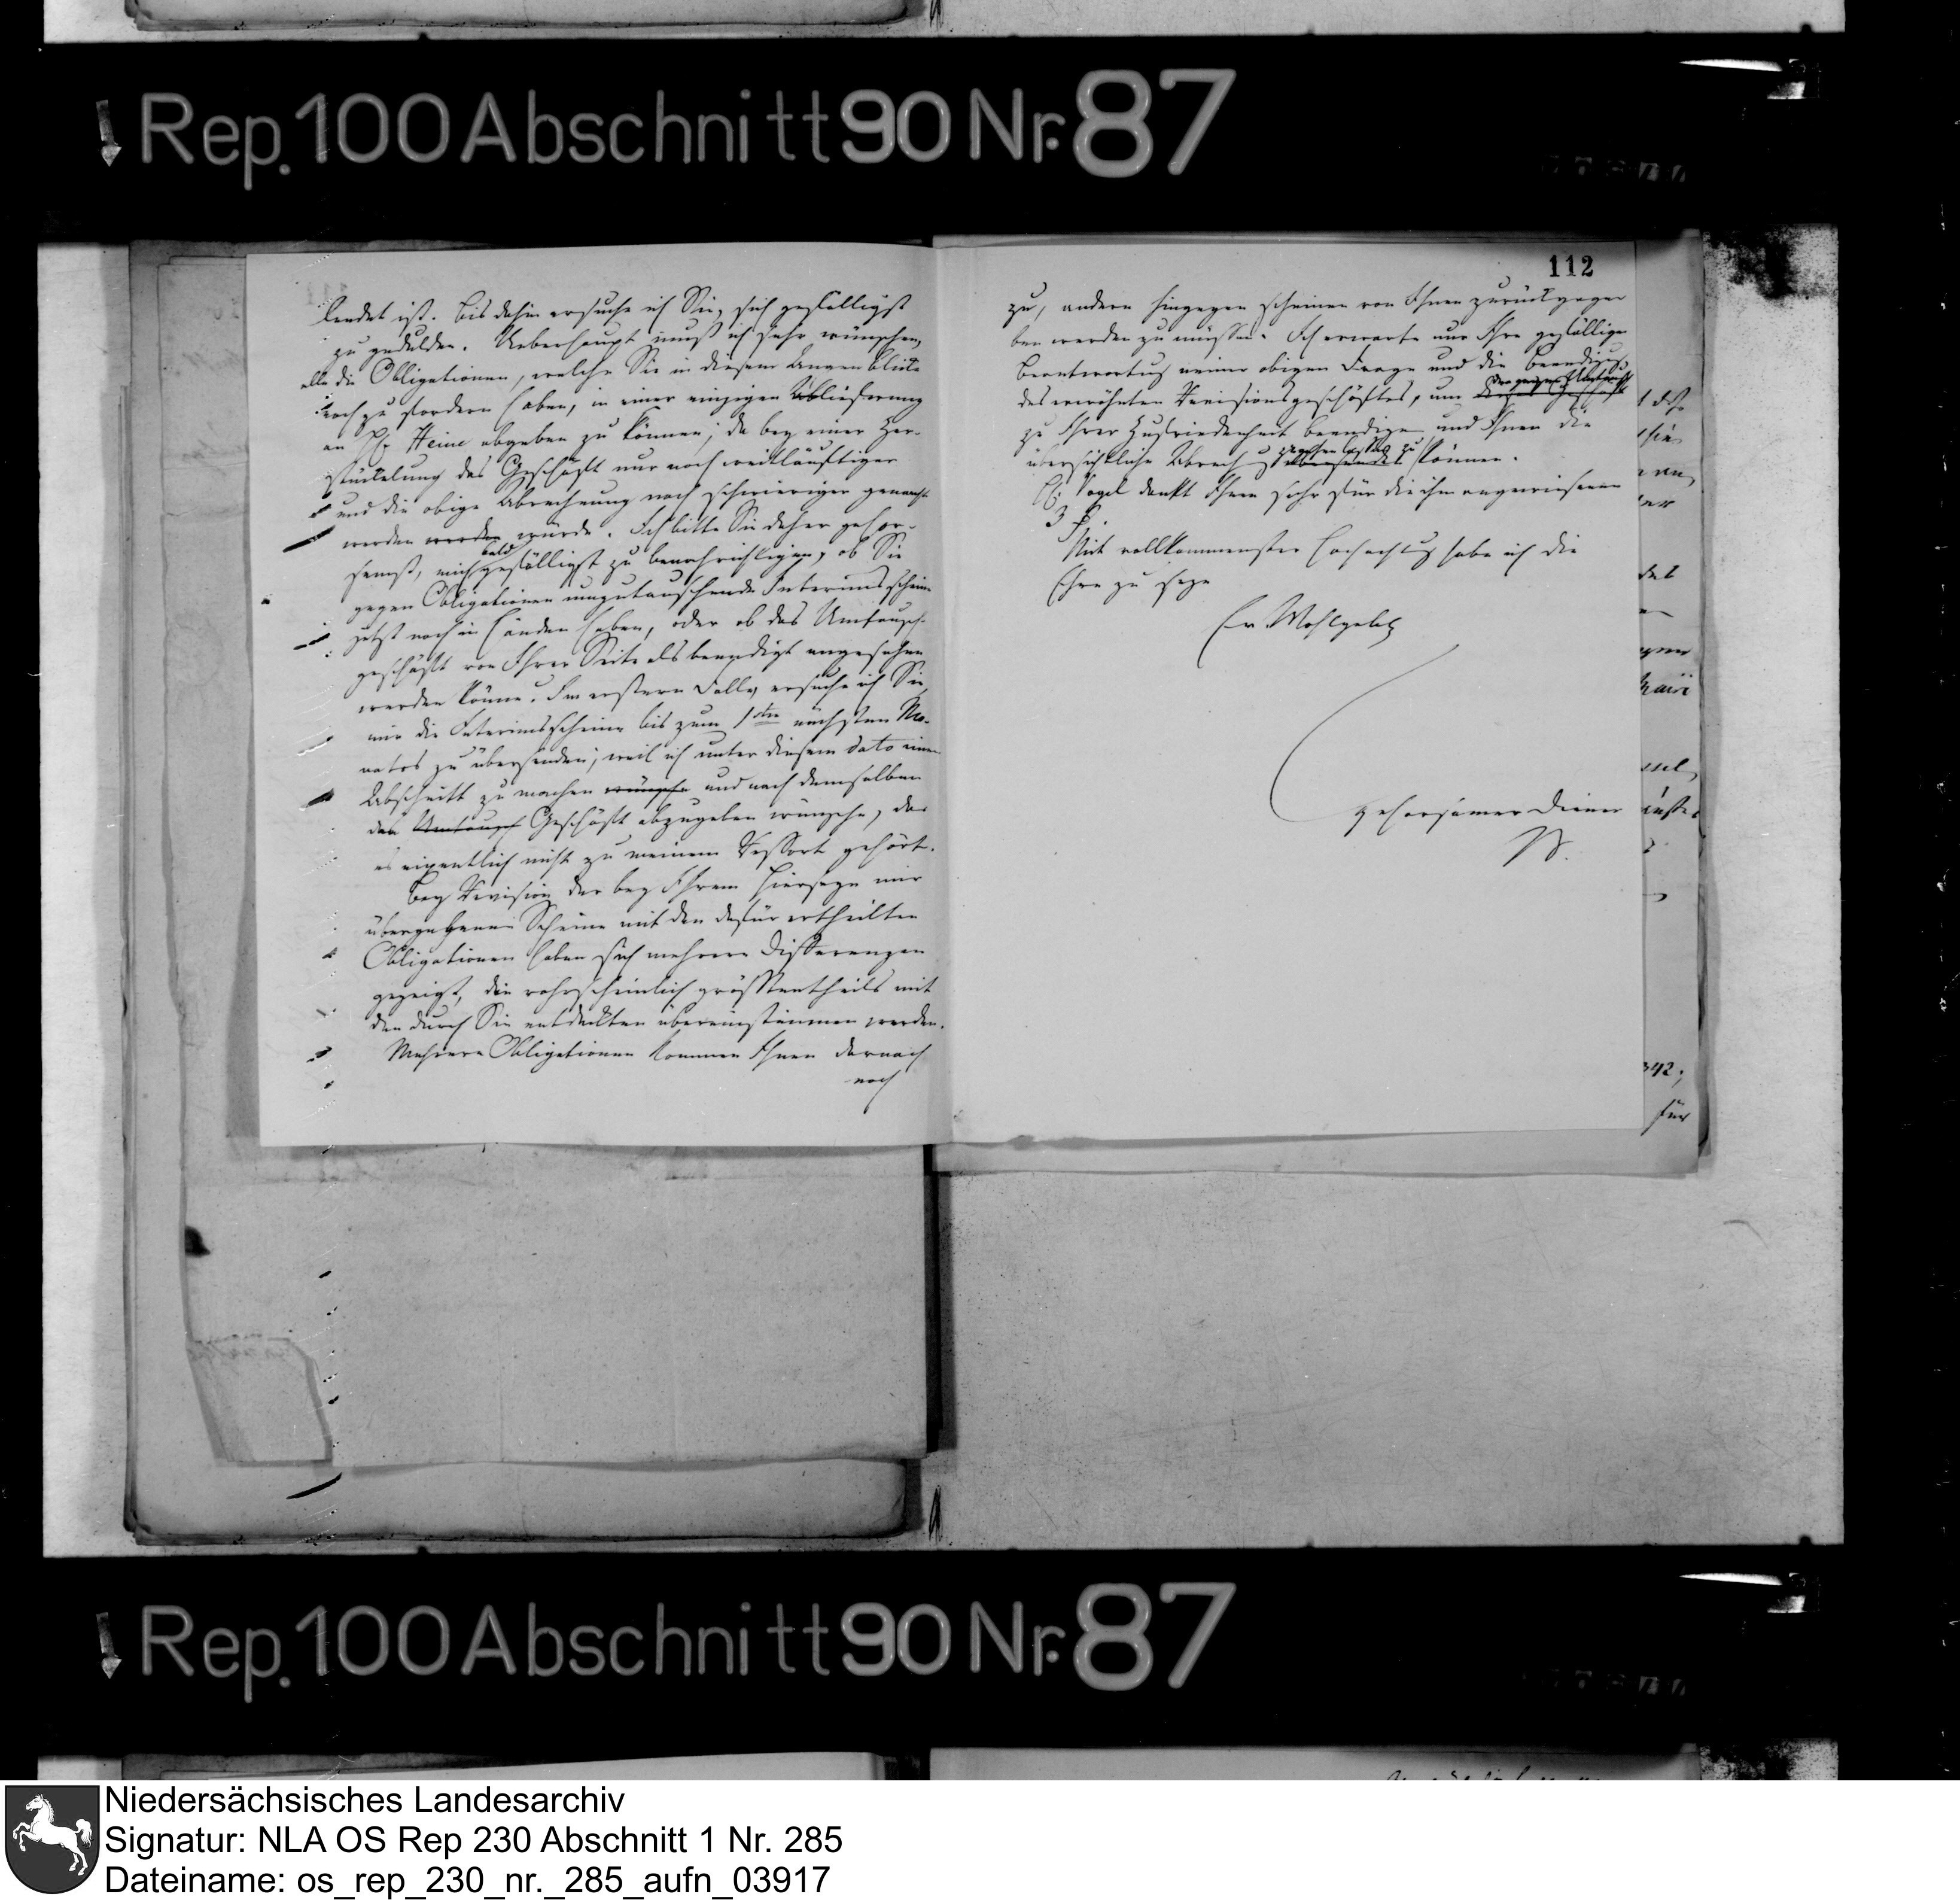 Rep. 100 Abschnitt 90 Nr. 87
lendet ist. Bis dahin ersuche ich Sie, sich gefälligst
zu gedulden. Ueberhaupt muß ich sehr wünschen,
alle die Obligationen, welche Sie in diesem Augenblicke
noch zu fordern haben, in einer einzigen Ablieferung
an H. Heine abgeben zu können; da bey einer Zer-
stückelung das Geschäft nur noch weitläuftiger
und die obige Abrechnung noch schwieriger gemacht
werden werden würde. Ich bitte Sie daher gehor-
samst, mich bald gefälligst zu benachrichtigen, ob Sie
gegen Obligationen umzutauschende Interimsscheine
jetzt noch in Händen haben, oder ob das Umtausch-
geschäft von Ihrer Seite als beendigt angesehen
werden könne. Im erstern Falle, ersuche ich Sie,
mir die Interimsscheine bis zum 1sten nächsten Mo-
nates zu übersenden, weil ich unter diesem dato einen
Abschnitt zu machen wünsche und nach demselben
das Umtausch Geschäft abzugeben wünsche, da
es eigentlich nicht zu meinem Ressort gehört.
Bey Revision der bey Ihrem Hierseyn mir
übergebenen Scheine mit den dafür ertheilten
Obligationen haben sich mehrere Differenzen
gezeigt, die wahrscheinlich größtentheils mit
den durch Sie entdeckten übereinstimmen werden.
Mehrere Obligationen kommen Ihnen darnach
noch
112
zu, andere hingegen scheinen von Ihnen zurückgege-
ben werden zu müssen. Ich erwarte nur Ihre gefällige
Beantwortung meiner obigen Frage und die Beendigung
des erwähnten Revisionsgeschäftes, um dieses Geschäft
zu Ihrer Zufriedenheit beendigen und Ihnen die
übersichtliche Abrechnung übersenden zu können.
H. Vogel dankt Ihnen sehr für die ihm angewiesenen
3
Mit vollkommenster Hochachtung habe ich die
Ehre zu seyn
Ew. Wohlgeb
gehorsamer Diener
Rep. 100 Abschnitt 90 Nr. 87
Niedersächsisches Landesarchiv
Signatur: NLA OS Rep 230 Abschnitt 1 Nr. 285
Dateiname: os_rep_230_nr._285_aufn_03917